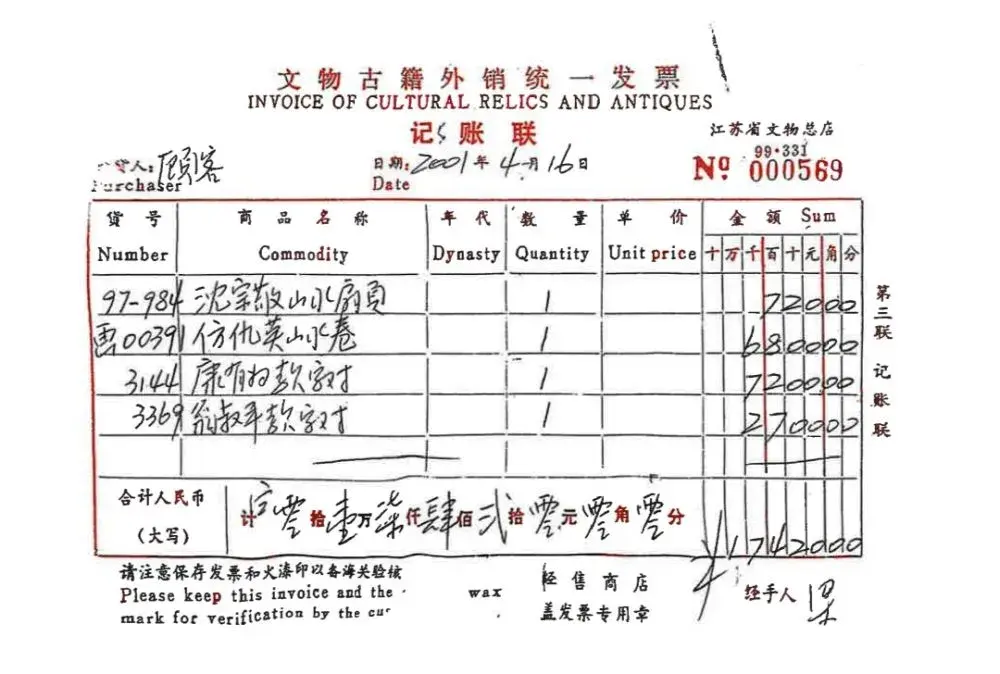 文物古籍外销统一发票
INVOICE OF CULTURAL RELICS AND ANTIQUES
记账联
江苏省文物总店
99·331
Nº 000569
货人: 顾客
Purchaser
日期: 2001年4月16日
Date
货号 商品名称 年代 数量 单价 金额 Sum
Number Commodity Dynasty Quantity Unit price 十万千百十元角分
97-984 沈宗敬山水扇页 1 72000
画00391 仿仇英山水卷 1 680000
3144 康有为款字对 1 720000
3369 翁叔平款字对 1 270000
合计人民币 计零拾壹万柒仟肆佰贰拾零元零角零分
(大写) ¥1742000
第三联 记账联
请注意保存发票和火漆印以备海关验核
Please keep this invoice and the wax
mark for verification by the
经售商店
盖发票专用章
经手人 梁